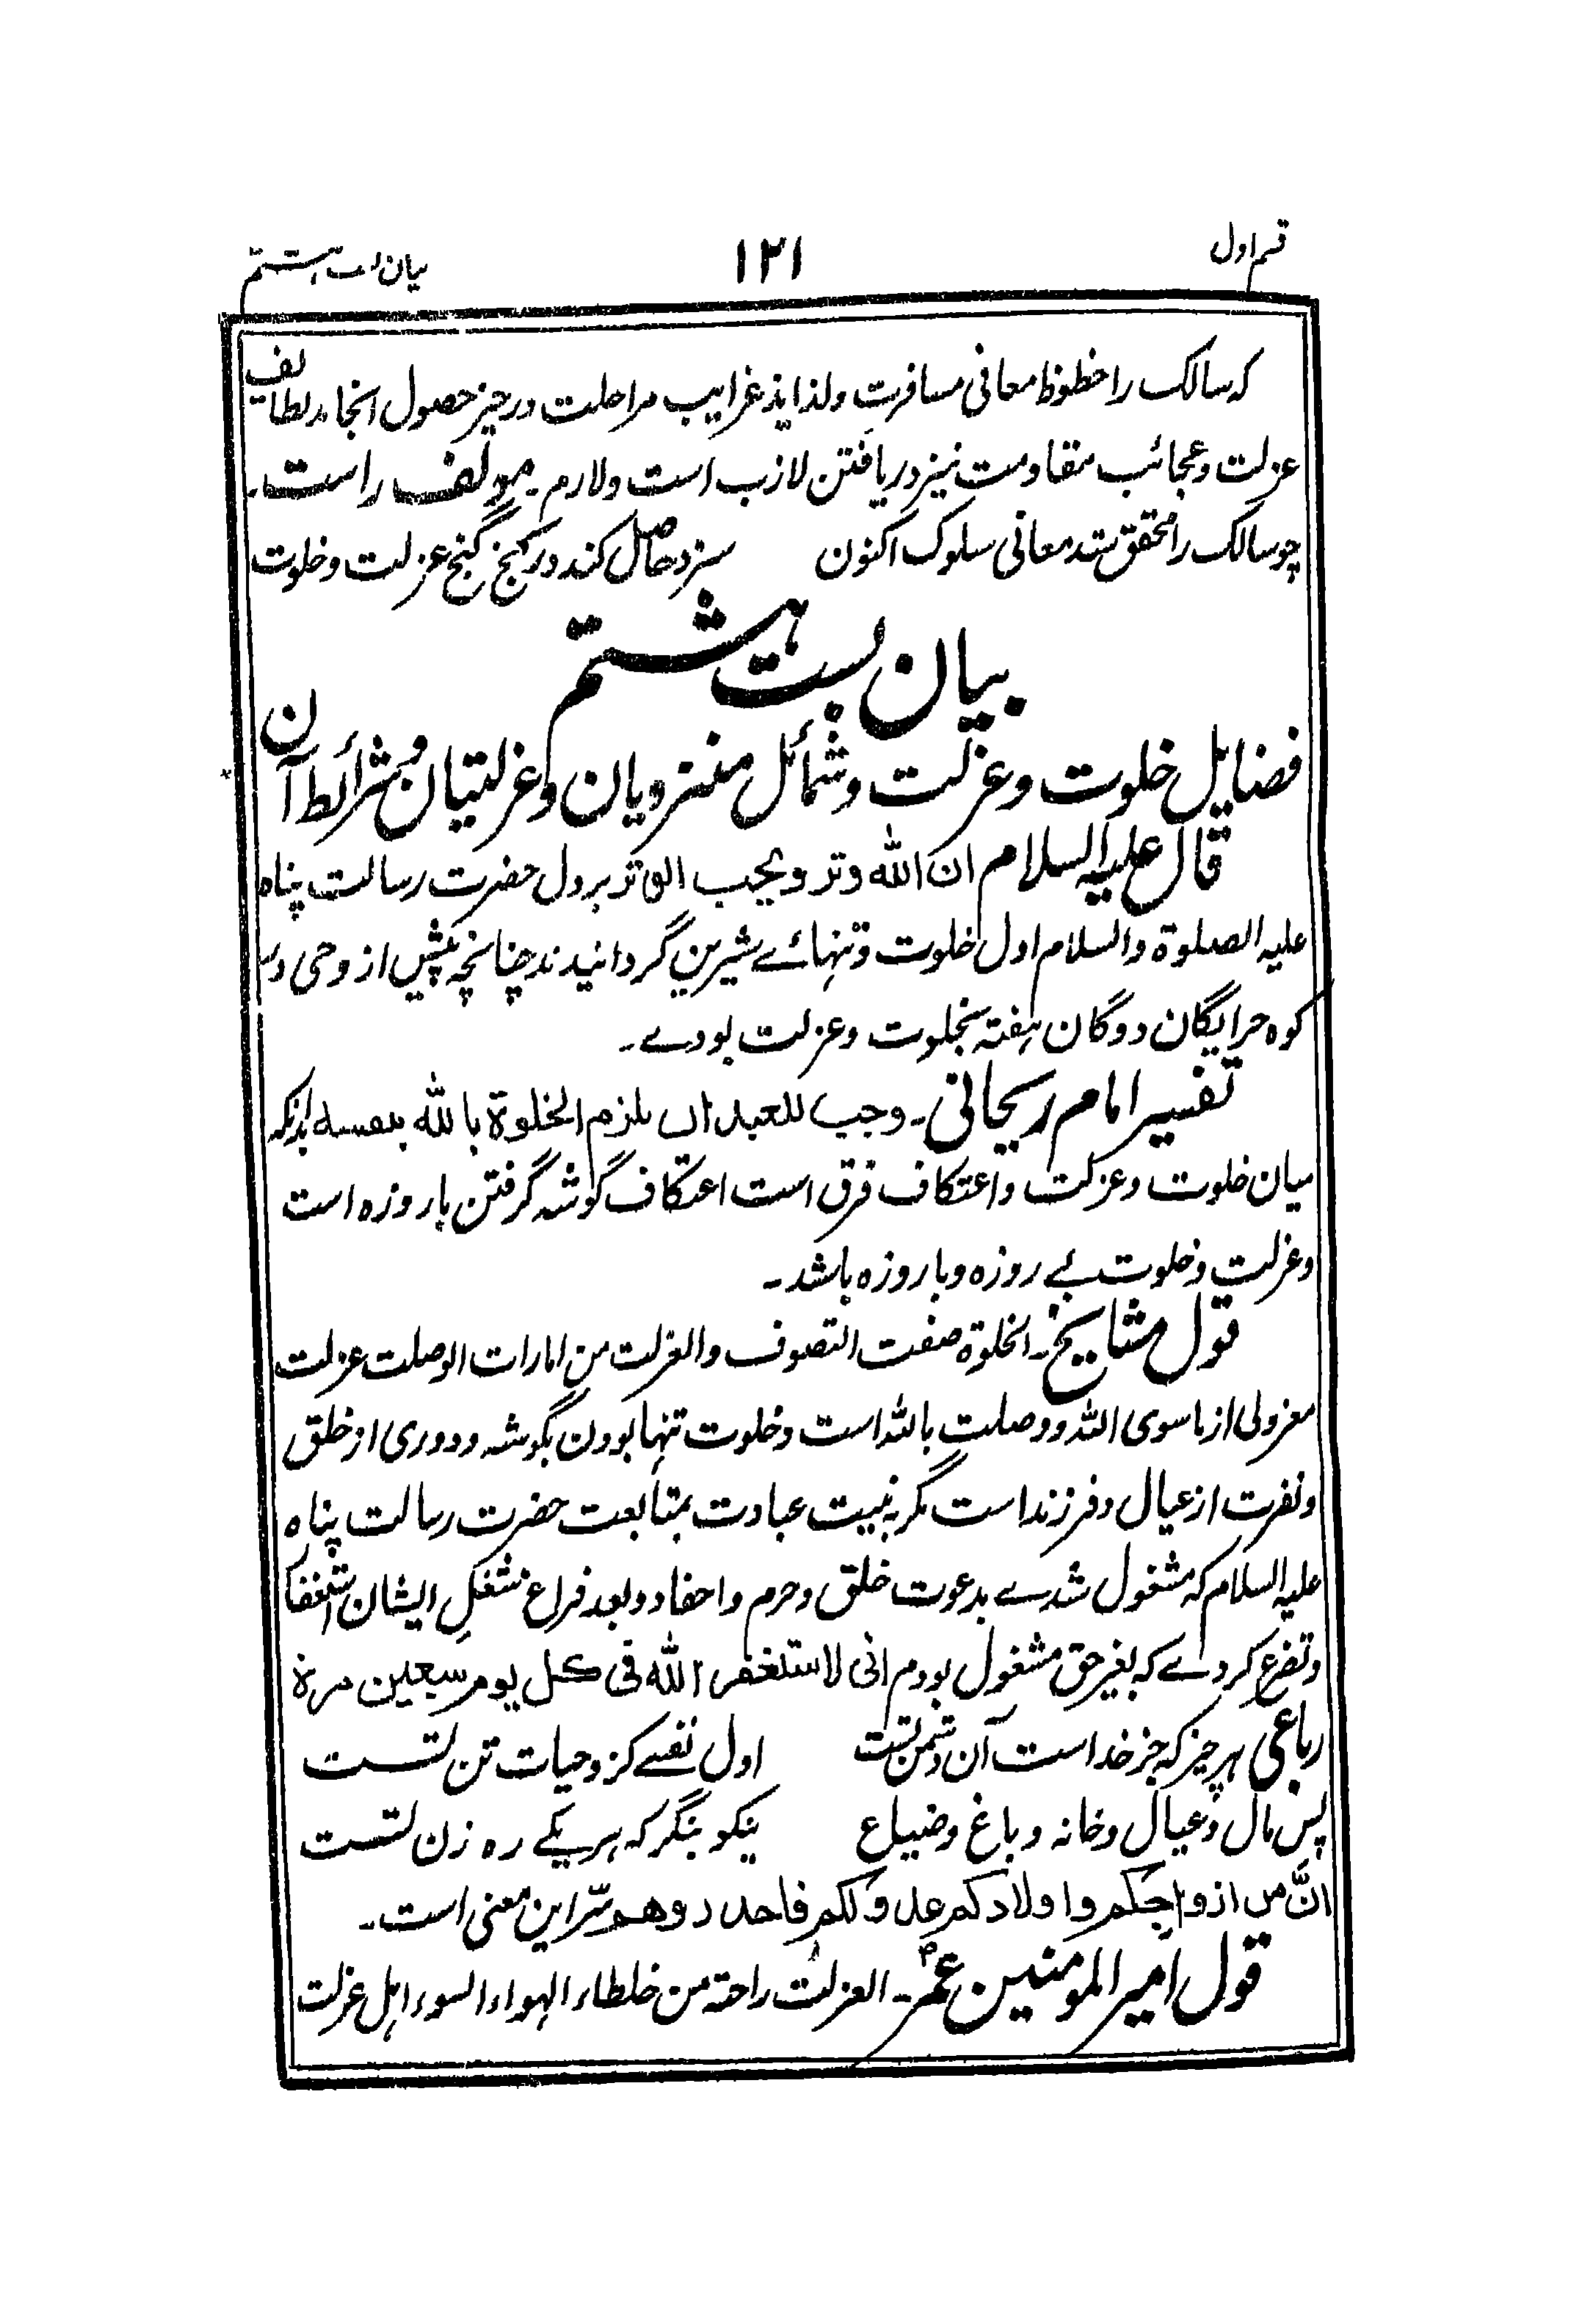 قسم اول
۱۲۱
بیان بست ہشتم
کہ سالک را حظوظ معانی مسافرت ولذایذ غرایب مراحلت در حیز حصول انجامد لطایف
عزلت وعجائب مقاومت نیز دریافتن لازب است ولازم۔ مولف راست۔
چو سالک را محقق شد معانی سلوک اکنون سزد حاصل کند در کنج گنج عزلت وخلوت
بیان بست ہشتم
فضایل خلوت وعزلت وشمائل منزویان وعزلتیان وشرائط آن
قال علیہ السلام ان اللہ وتر ویحب الوتر بر دل حضرت رسالت پناہ
علیہ الصلوۃ والسلام اول خلوت وتنہائے شیرین گردانیدند چنانچہ پیش از وحی در
کوہ حرا یگان دوگان ہفتہ بخلوت وعزلت بودے۔
تفسیر امام ریحانی۔ وجب للعبد ان یلزم الخلوۃ باللہ بنفسہ بدانکہ
میان خلوت وعزلت واعتکاف فرق است اعتکاف گوشہ گرفتن با روزہ است
وعزلت وخلوت بے روزہ وبا روزہ باشد۔
قول مشایخ۔ الخلوۃ صفت التصوف والعزلت من امارات الوصلت عزلت
معزولی از ماسوی اللہ ووصلت باللہ است وخلوت تنہا بودن بگوشہ ودوری از خلق
ونفرت از عیال وفرزند است مگر بہ نیت عبادت بمتابعت حضرت رسالت پناہ
علیہ السلام کہ مشغول شدے بدعوت خلق وحرم واحفاد وبعد فراغ شغل ایشان استغفا
وتضرع کردے کہ بغیر حق مشغول بودم انی لاستغفر اللہ فی کل یوم سبعین مرۃ
رباعی ہر چیز کہ جز خداست آن دشمن تست اول نفسے کزو حیات تن تست
پس مال وعیال وخانہ وباغ وضیاع نیکو بنگر کہ ہر یکے رہ زن تست
انّ من ازواجکم واولادکم عدوّلکم فاحذروھم سرّ این معنی است۔
قول امیر المومنین عمرؓ۔ العزلت راحتہ من خلطاء الہواء السوء اہل عزلت